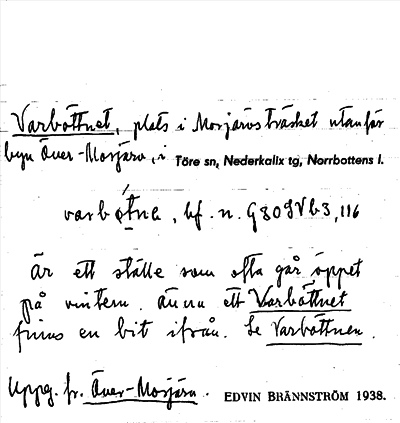 Varbottnet, plats i Morjärvs träsket utanför
byn Över-Morjärv, i Töre sn, Nederkalix tg, Norrbottens l.
varbótne, bf. n. G 809 V b 3, 116
Är ett ställe som ofta går öppet
på vintern. Ännu ett Varbottnet
finns en bit ifrån. Se Varbottnen.
Uppg. fr. Över-Morjärv. EDVIN BRÄNNSTRÖM 1938.